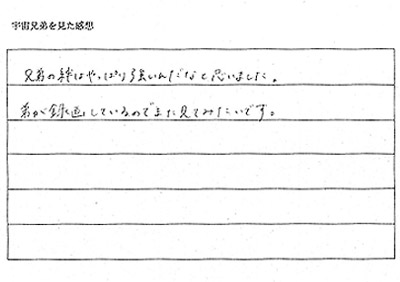 宇宙兄弟を見た感想
兄弟の絆はやっぱり強いんだなと思いました。
弟が録画しているのでまた見てみたいです。